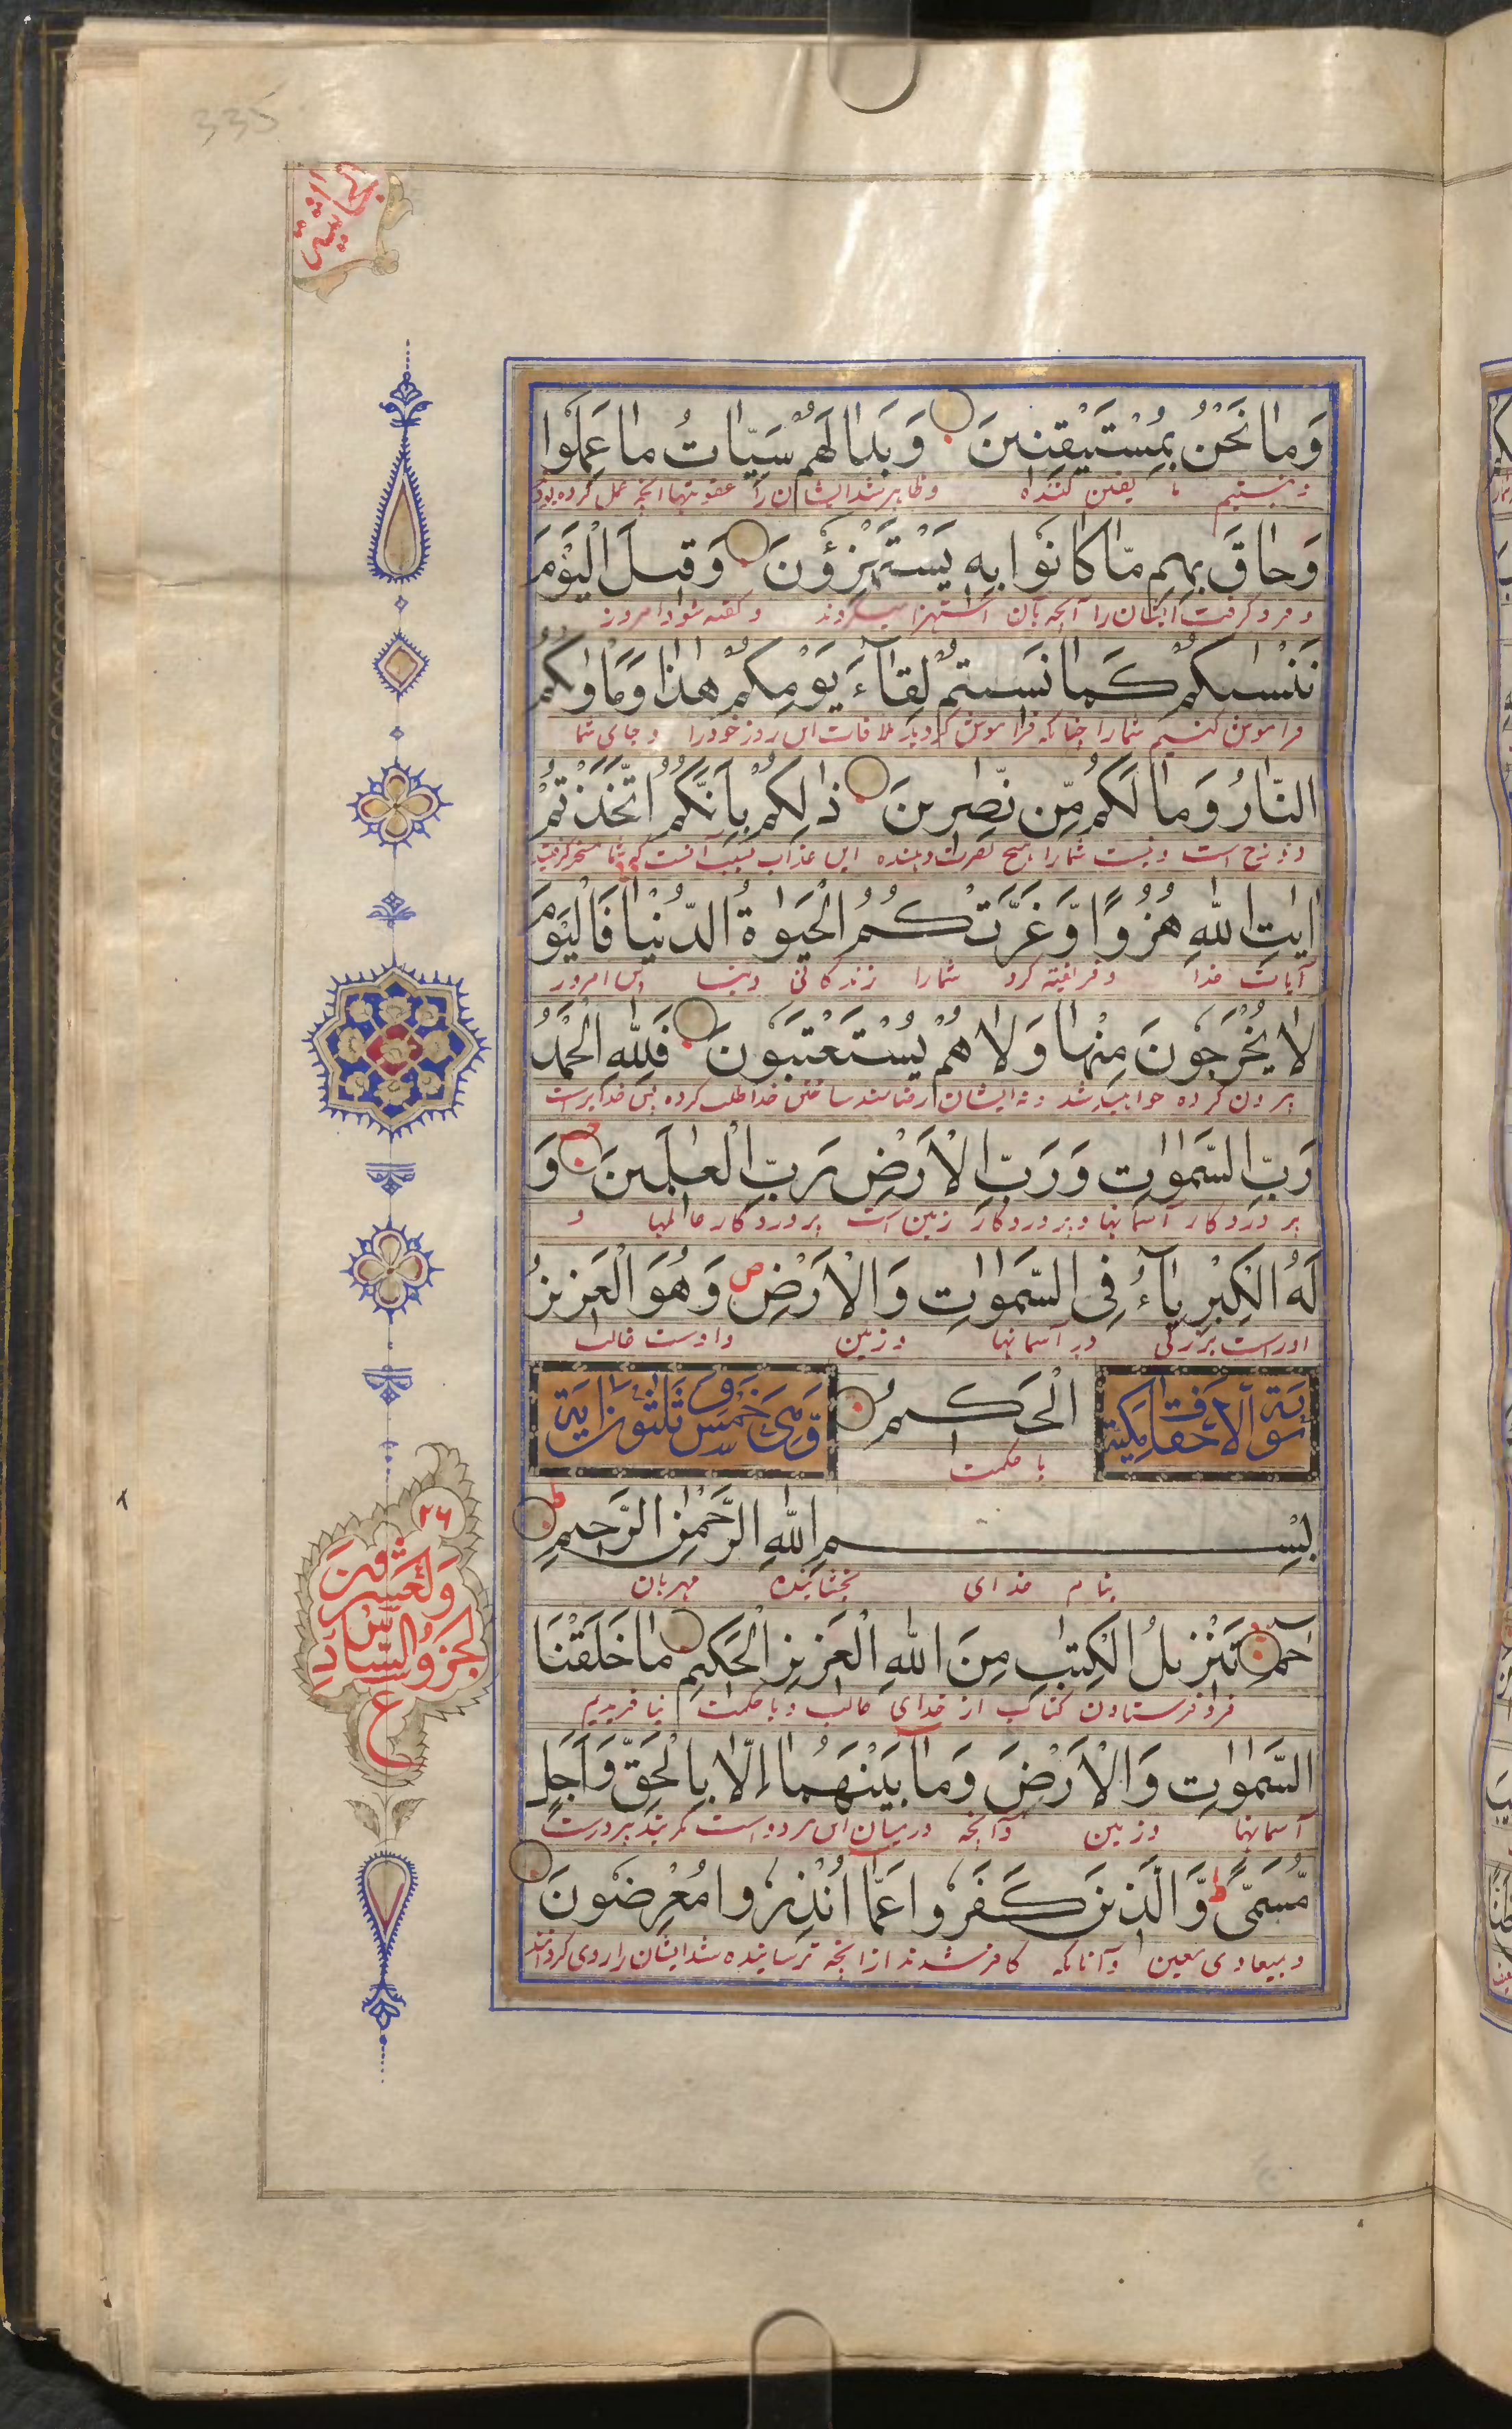 335
وَمَا نَحْنُ بِمُسْتَيْقِنِينَ وَبَدَا لَهُمْ سَيِّاٰتُ مَا عَمِلُوا
و نیستیم ما یقین کننده وظاهر شد ایشان را عقوبتها آنچه عمل کرده بودند
وَحَاقَ بِهِمْ مَّا كَانُوا بِهِ يَسْتَهْزِؤُنَ وَقِيلَ الْيَوْمَ
و فرو گرفت ایشان را آنچه بآن استهزا میکردند و گفته شود امروز
نَنْسٰىكُمْ كَمَا نَسِيتُمْ لِقَآءَ يَوْمِكُمْ هٰذَا وَمَاْوٰىكُمُ
فراموش کنیم شما را چنانکه فراموش کردید ملاقات این روز خود را و جای شما
النَّارُ وَمَا لَكُمْ مِّن نّٰصِرِينَ ذٰلِكُمْ بِاَنَّكُمُ اتَّخَذْتُمْ
دوزخ است و نیست شما را هیچ نصرت دهنده این عذاب بسبب آنست که شما
اٰيٰتِ اللّٰهِ هُزُوًا وَّغَرَّتْكُمُ الْحَيٰوةُ الدُّنْيَا فَالْيَوْمَ
آیات خدا و فریفته کرد شما را زندگانی دنیا پس امروز
لَا يُخْرَجُونَ مِنْهَا وَلَا هُمْ يُسْتَعْتَبُونَ فَلِلّٰهِ الْحَمْدُ
بیرون کرده خواهند شد و نه ایشان رضامند ساختن خدا طلب کرده پس خدا
رَبِّ السَّمٰوٰتِ وَرَبِّ الْاَرْضِ رَبِّ الْعٰلَمِينَ وَ
پروردگار آسمانها و پروردگار زمین است پروردگار عالمها و
لَهُ الْكِبْرِيَآءُ فِي السَّمٰوٰتِ وَالْاَرْضِ ص وَهُوَ الْعَزِيزُ
اوراست بزرگی در آسمانها و زمین و اوست غالب
سورة الاحقاف مكية
الْحَكِيمُ
وَّهِيَ خَمْسٌ وَّثَلٰثُونَ اٰيَةً
با حکمت
بِسْمِ اللّٰهِ الرَّحْمٰنِ الرَّحِيمِ
بنام خدای بخشاینده مهربان
حٰمٓ تَنْزِيلُ الْكِتٰبِ مِنَ اللّٰهِ الْعَزِيزِ الْحَكِيمِ مَا خَلَقْنَا
فرو فرستادن کتاب از خدای غالب و با حکمت نیافریدیم
السَّمٰوٰتِ وَالْاَرْضَ وَمَا بَيْنَهُمَا اِلَّا بِالْحَقِّ وَاَجَلٍ
آسمانها و زمین و آنچه درمیان این هر دو است مگر
مُّسَمًّى ط وَّالَّذِينَ كَفَرُوا عَمَّا اُنْذِرُوا مُعْرِضُونَ
و میعادی معین و آنانکه کافر شدند از آنچه ترسانیده شد ایشان را روی
٢٦
الجزو السادس والعشرون
ع